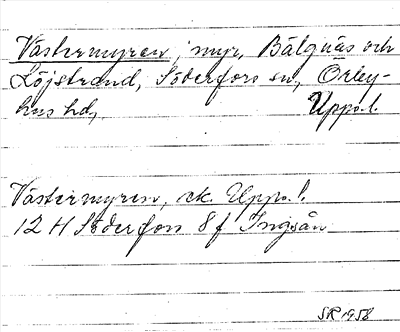 Västermyren, myr, Bälgnäs och
Löjstrand, Söderfors sn, Örby-
hus hd, Upps.l.
Västermyren, ek. Upps.l.
12 H Söderfors 8 f Ingsån
SR 1958